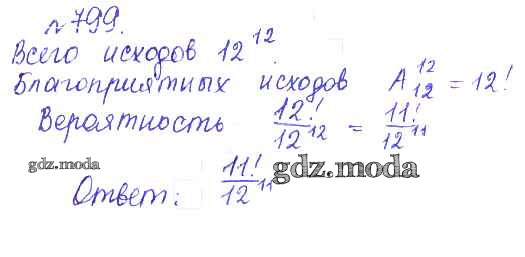 № 799.
Всего исходов 12^12.
Благоприятных исходов A_12^12 = 12!
Вероятность 12!/12^12 = 11!/12^11
gdz.moda gdz.moda
Ответ: 11!/12^11